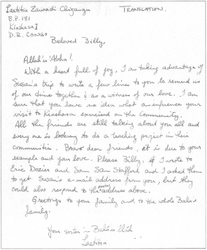 Laetitia Zawadi Chizungu
B.P. 181
Kinshasa I
D.R. Congo
TRANSLATION
Beloved Billy,
Allah'u'Abha!
With a heart full of joy, I am taking advantage of
Susan's trip to write a few lines to you to remind us
of our time together as a version of our love. I am
sure that you have no idea what an influence your
visit to Kinshasa exercised on the Community.
All the friends are still talking about you all and
every one is looking to do a teaching project in their
communities. Bravo dear friends, it is due to your
example and your love. Please Billy, if I wrote to
Eric Dozier and Sam Stafford and I asked them
to get Susan's e-mail address from you, but they
could also respond to this address above.
Greetings to your family and to the whole Baha'i
family.
Your sister in
Laetitia